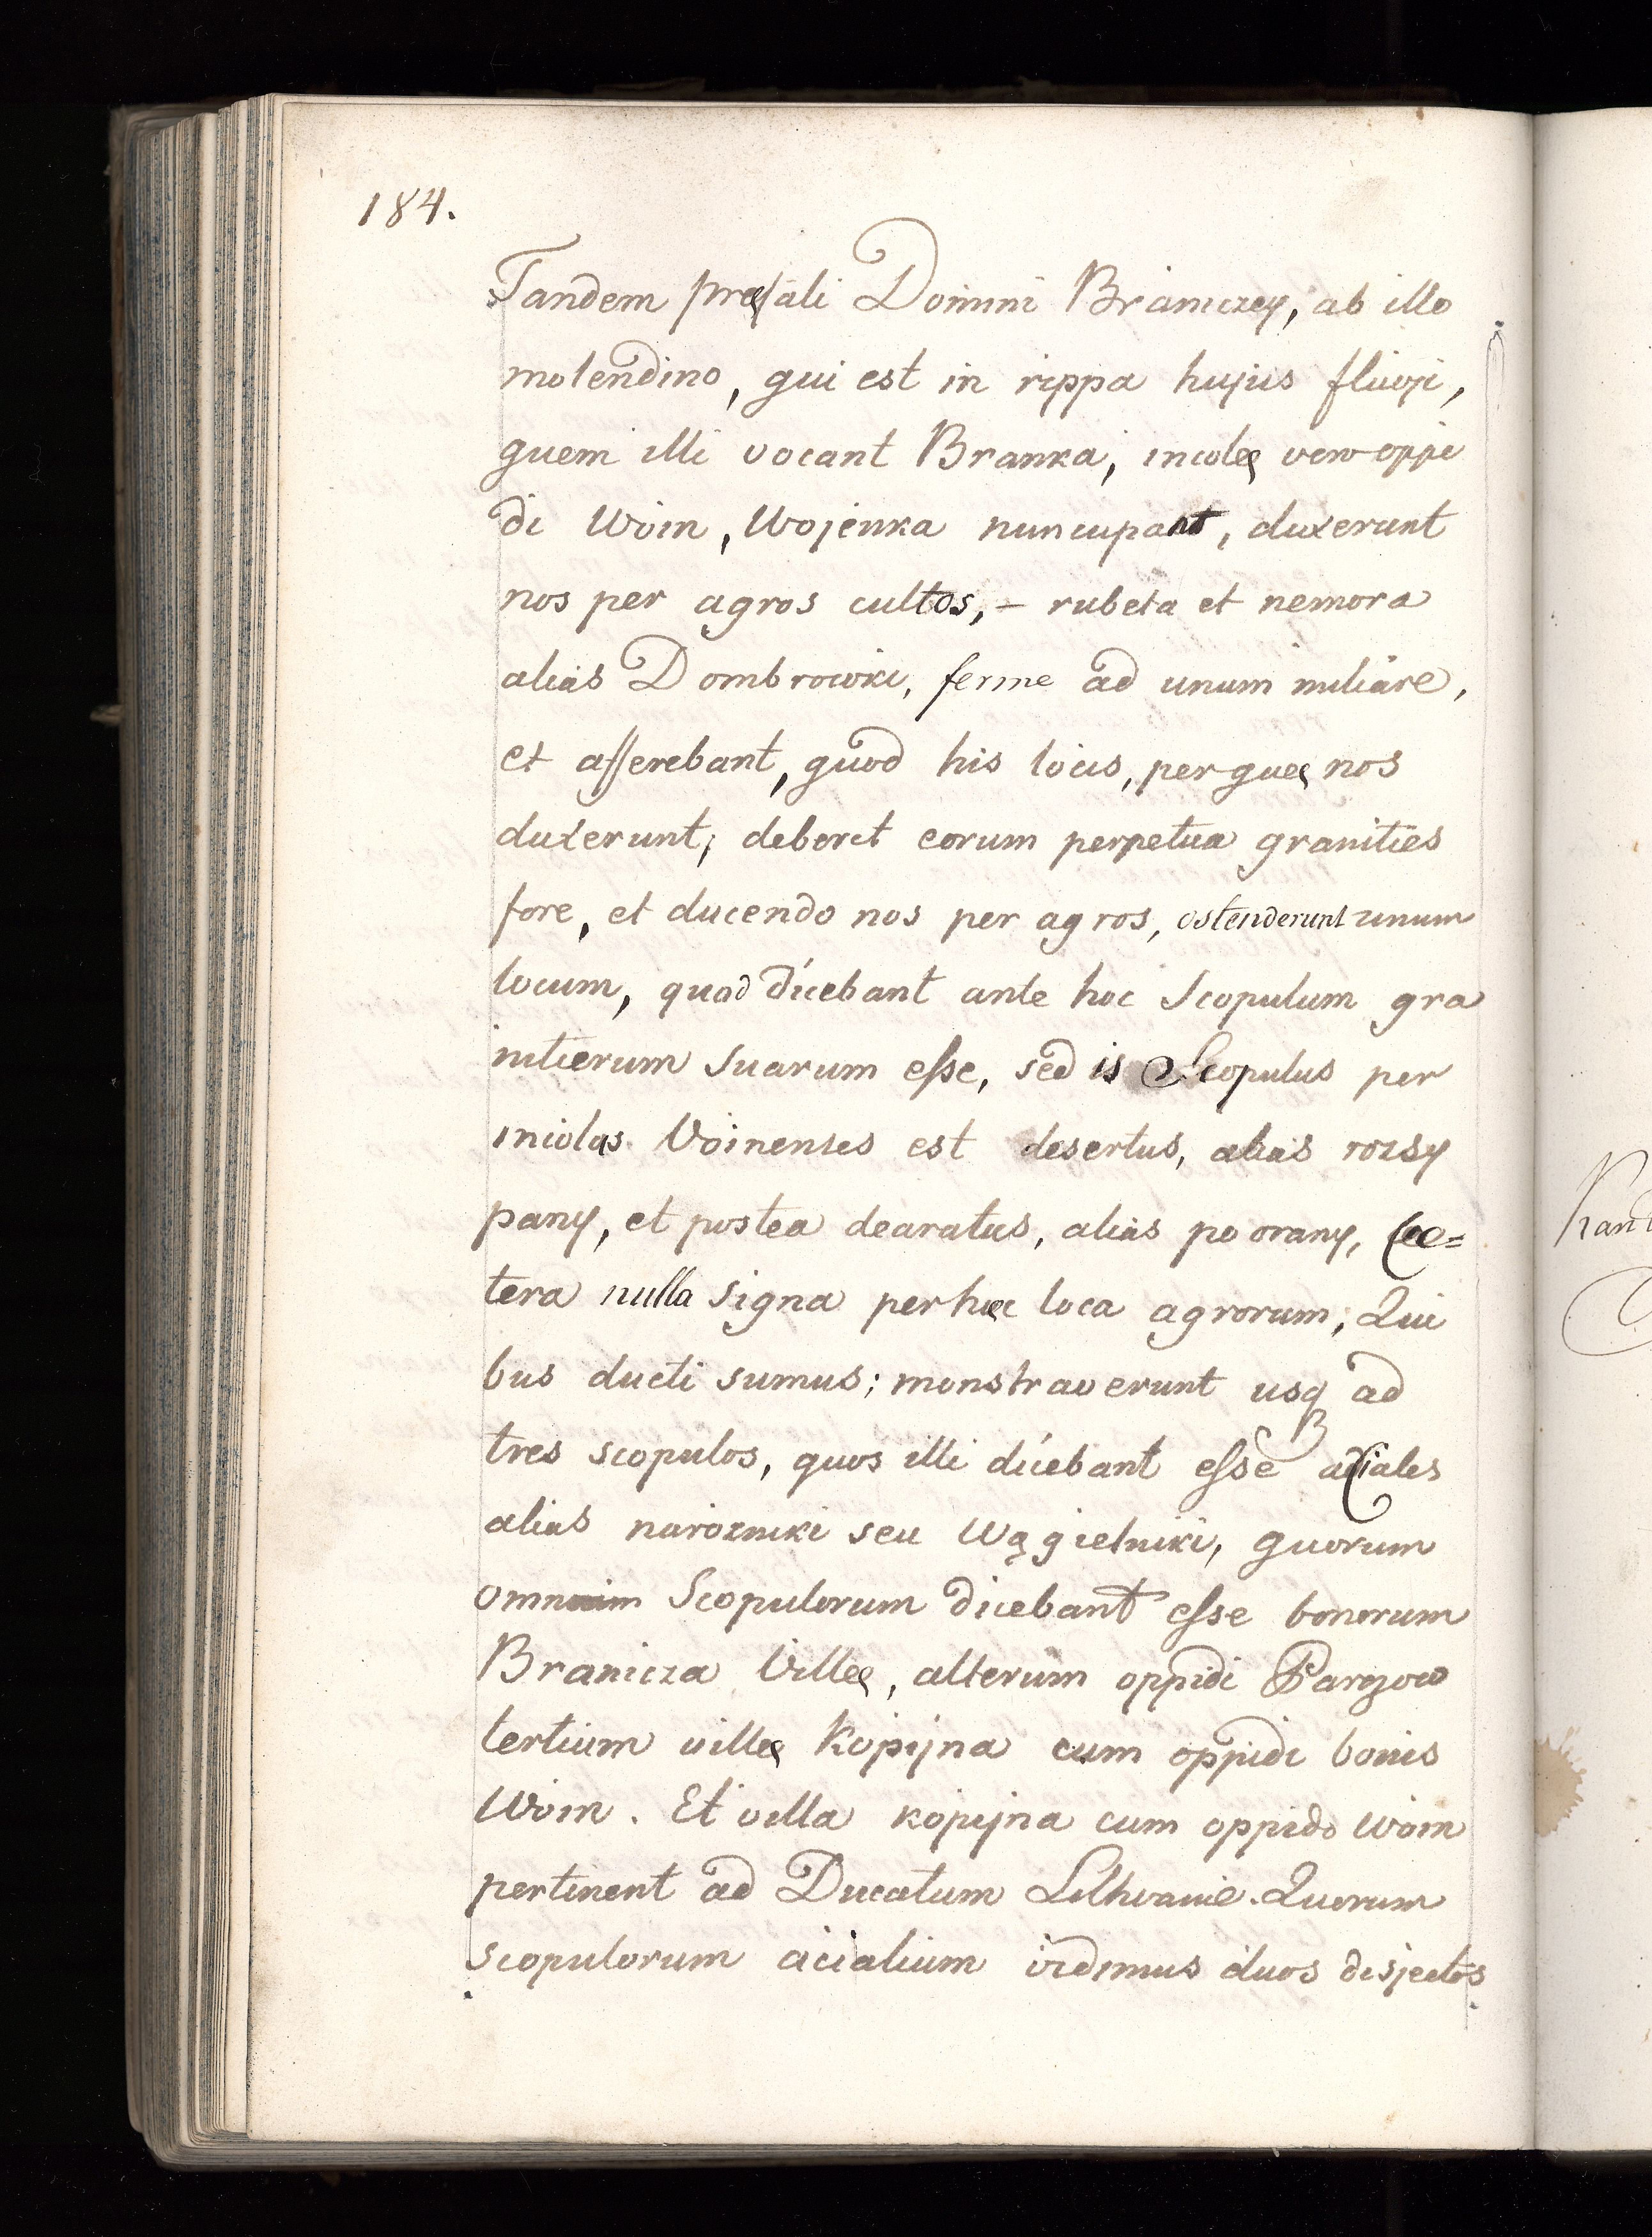 184.
Tandem præfati Domini Braniczey, ab illo
molendino, qui est in rippa hujus fluvji,
quem illi vocant Branka, incolæ vero oppi
di Woin, Wojenka nuncupant, duxerunt
nos per agros cultos, – rubeta et nemora
alias Dombrowki, ferme ad unum miliare,
et asserebant, quod his locis, per quæ nos
duxerunt, deberet eorum perpetua granities
fore, et ducendo nos per agros, ostenderunt unum
locum, quod dicebant ante hoc Scopulum gra
nitierum suarum esse, sed is Scopulus per
incolas Voinenses est desertus, alias rozsy
pany, et postea dearatus, alias po orany, Cæ=
tera nulla signa per hæc loca agrorum, Qui
bus ducti sumus; monstraverunt usq ad
tres scopulos, quos illi dicebant esse aciales
alias narozniki seu Wągielniki, quorum
Scopulorum dicebant esse bonorum
Branicza Villæ, alterum oppidi Parczow
tertium villæ Kopijna cum oppidi bonis
Woin. Et villa kopijna cum oppido Woin
pertinent ad Ducatum Lithvaniæ. Quorum
scopulorum acialium vidimus duos disjectos
Kan